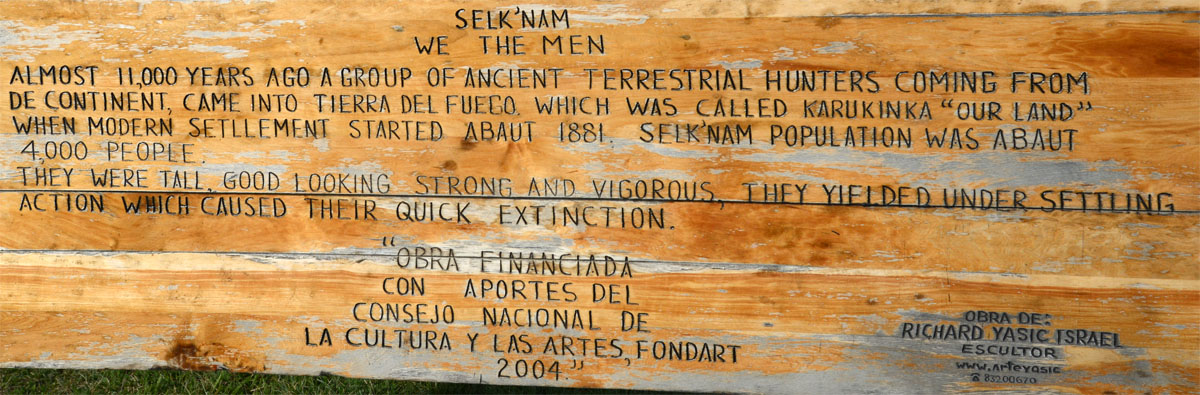 SELK'NAM
WE THE MEN
ALMOST 11,000 YEARS AGO A GROUP OF ANCIENT TERRESTRIAL HUNTERS COMING FROM
DE CONTINENT, CAME INTO TIERRA DEL FUEGO, WHICH WAS CALLED KARUKINKA "OUR LAND"
WHEN MODERN SETLLEMENT STARTED ABAUT 1881, SELK'NAM POPULATION WAS ABAUT
4,000 PEOPLE.
THEY WERE TALL, GOOD LOOKING STRONG AND VIGOROUS, THEY YIELDED UNDER SETTLING
ACTION WHICH CAUSED THEIR QUICK EXTINCTION.
"OBRA FINANCIADA
CON APORTES DEL
CONSEJO NACIONAL DE
LA CULTURA Y LAS ARTES, FONDART
2004."
OBRA DE:
RICHARD YASIC ISRAEL
ESCULTOR
www.arteyasic
☎ 83200670